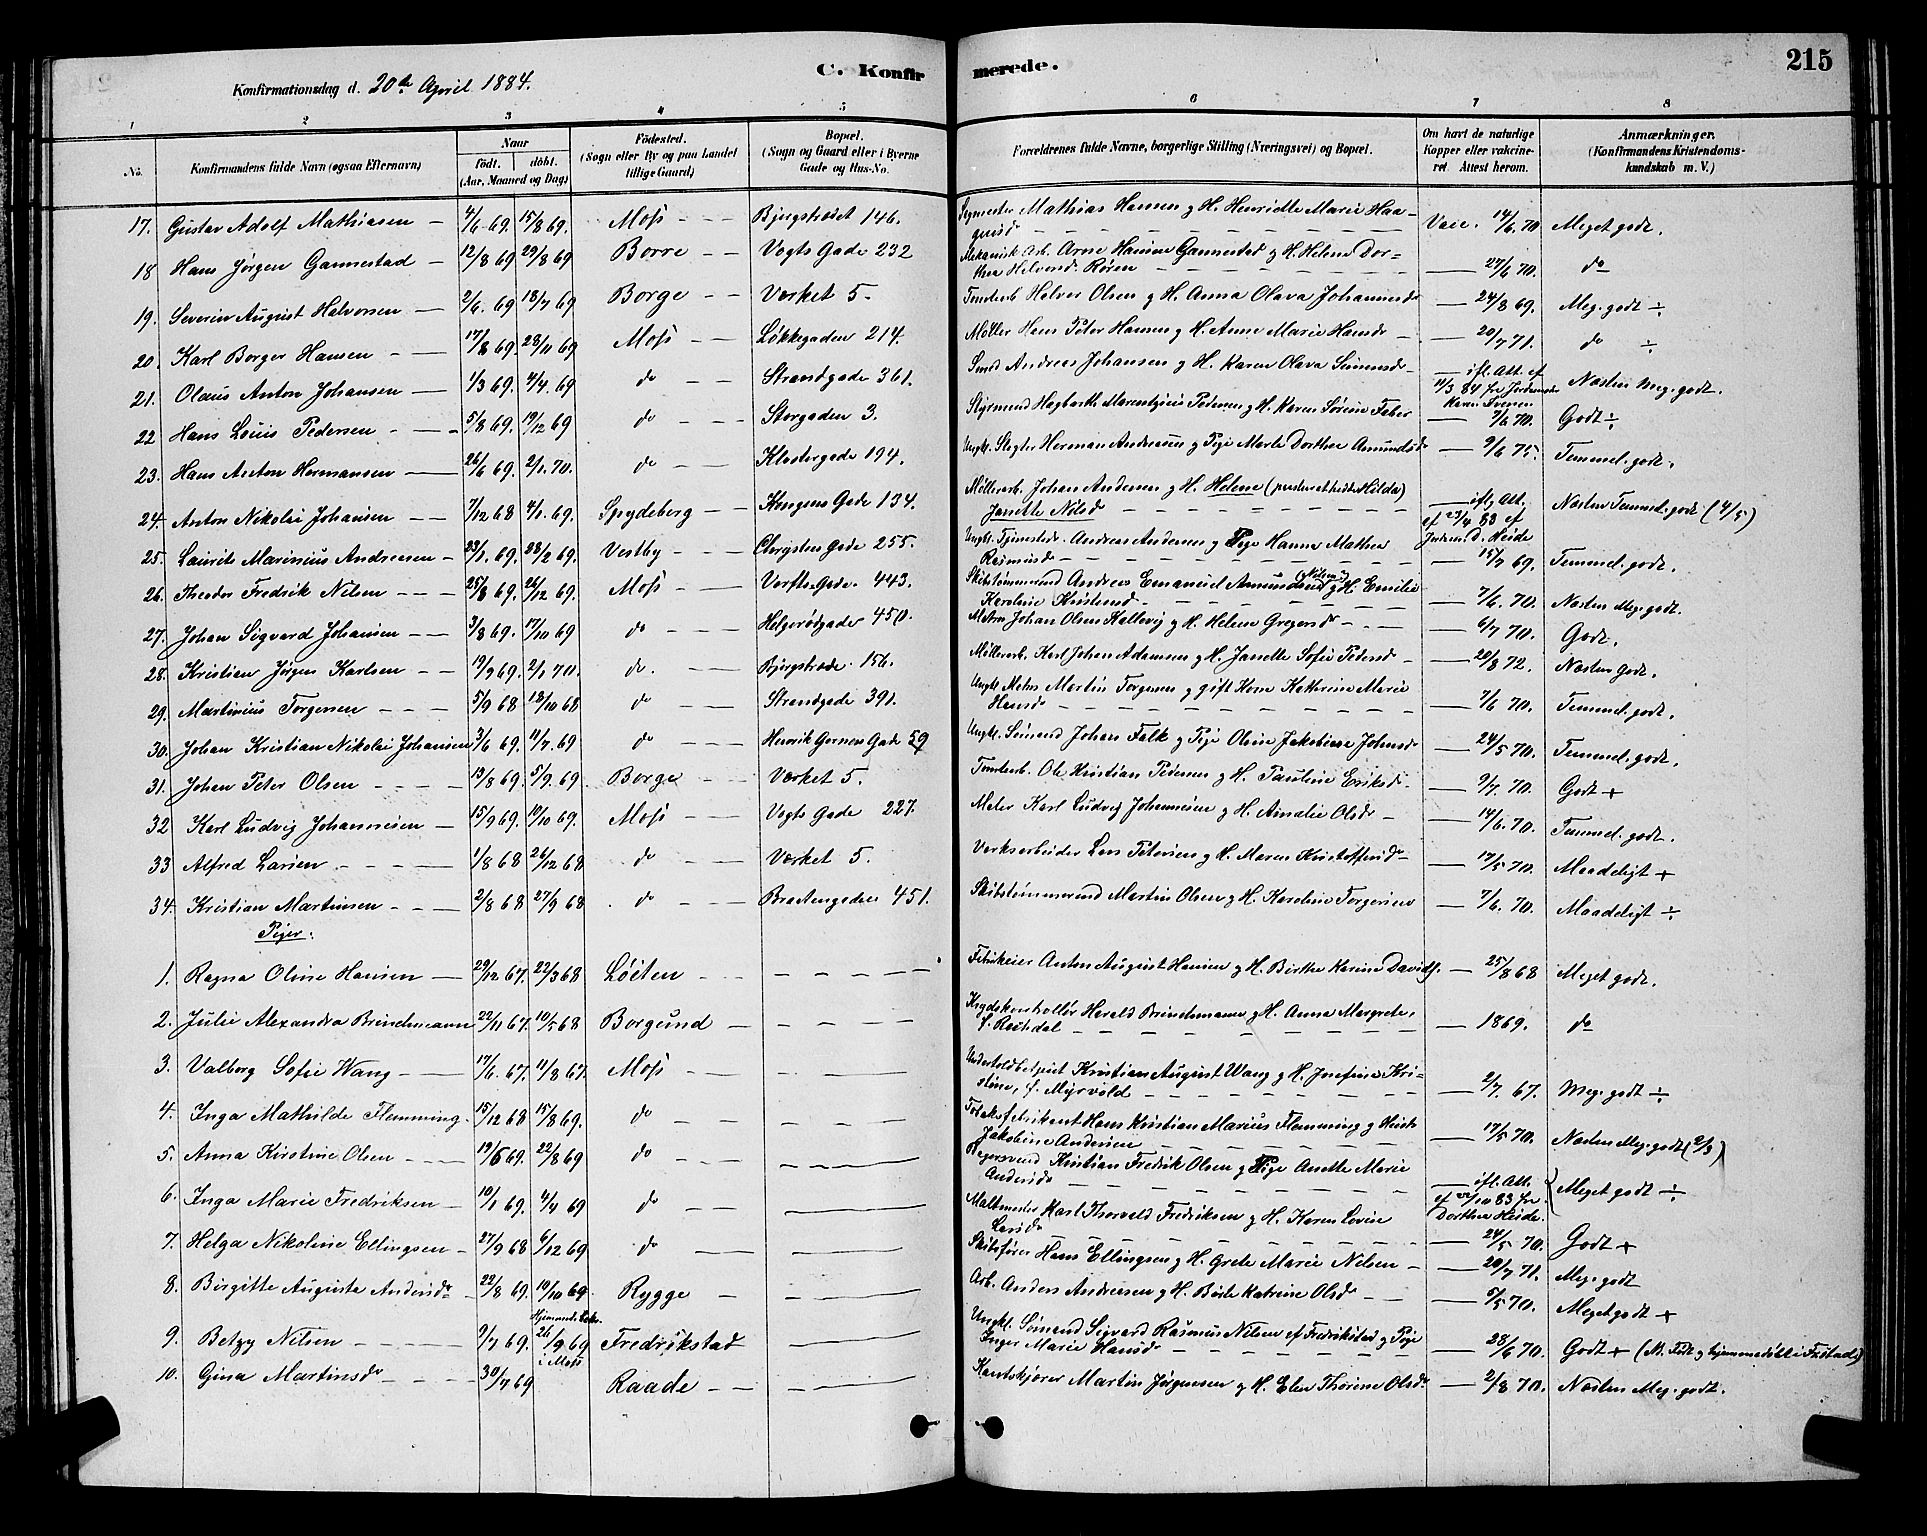 C. Konfirmerede.
215
Konfirmationsdag d. 20de April 1884.
1 2 3 4 5 6 7 8
No.
Konfirmandens fulde Navn (ogsaa Efternavn)
Naar
födt. döbt.
(Aar, Maaned og Dag)
Födested.
(Sogn eller By og paa Landet
tillige Gaard)
Bopæl.
(Sogn og Gaard eller i Byerne
Gade og Hus-No.
Forældrenes fulde Navne, borgerlige Stilling (Næringsvei) og Bopæl.
Om havt de naturlige
Kopper eller vakcine-
ret. Attest herom.
Anmærkninger.
(Konfirmandens Kristendoms-
kundskab m. V.)
17. Gustav Adolf Mathiasen 4/6 69. 15/8 69. Moss Bjergstrædet 146. Mathias Hansen g H. Henriette Marie Haa-
quisd Vacc. 14/6 70 Meget godt.
18 Hans Jørgen Gannestad 12/8 69 29/8 69 Borre Vogts Gade 232 Mekanisk Arb. Arne Hansen Gannestad g H. Helene Dor-
thea Helvensd. Røren 27/6 70. do
19. Severin August Halvorsen 2/6. 69 18/7 69 Borge Værket 5. Tomtearb. Halvor Olsen g H. Anna Olava Johannesdr 24/8 69. Meg. godt ÷
20. Karl Borger Hansen 17/8 69. 28/11 69 Moss Løkkegaden 214. Møller Hans Peter Hansen g H. Anne Marie Hansdr 20/7 71. do ÷
21. Olaus Anton Johansen 1/3 69. 4/4. 69 do Strandgade 361. Smed Andreas Johansen g H. Karen Olava Simensdr ifl. Att. af
11/3 84 fra Jordemoder
Karen Svensen Næsten meg. godt.
22 Hans Louis Pedersen 5/8 69. 19/12 69 do Storgaden 3. Styrmand Hagbarth Marentzius Pedersen g H. Karen Sørine Faber 7/6 70. Godt ÷
23. Hans Anton Hermansen 26/6 69. 2/1. 70. do Klostergade 194. Ungk. Slagter Herman Andreasen g Pige Marte Dorthea Amundsdr 9/6 75. Temmel. godt.
24. Anton Nikolai Johansen 7/12 68 4/1. 69. Spydeberg Kongens Gade 134. Møllerarb. Johan Andersen g H. Helene (paastod at hedde Hilda)
Janette Nilsd ifl. Att.
af 23/4 83 af
Jordem. D. Heide Næsten Temmel. godt (4/5)
25. Laurits Marinius Andreasen 23/1. 69. 28/2 69. Vestby Chrystens Gade 255. Ungk. Tjenestedr. Andreas Andersen g Pige Hanna Mathea
Rasmusdr 15/7 69. Temmel. godt.
26. Theodor Fredrik Nilsen 25/8 69. 26/12 69. Moss Værfts Gade. 443. Skibstømmermand Andreas Emanuel Amundsen (Nilsen) g H. Emilie
Karoline Kristensd 7/6. 70. Næsten Meg. godt.
27. Johan Sigvard Johansen 3/8 69. 17/10 69 do Helgerødgaden 450. Matros Johan Olsen Kallevig g H. Helene Gregersdr 6/7 70. Godt.
28. Kristian Jørgen Karlsen 19/9 69. 2/1 70. do. Bjergstræde. 156. Møllerarb. Karl Johan Adamsen g H. Janette Sofie Pedersd 20/8 72. Næsten Godt.
29. Martinius Torgersen 5/9 68 18/10 68 do Strandgade 391. Ungk. Matros Martin Torgersen g gift Kone Kathrine Marie
Hansdr 7/6 70. Temmel. godt.
30. Johan Kristian Nikolai Johansen 3/6 69. 11/7. 69 do Henrik Gerners Gade 59 Ungk. Sömand Johan Falk g Pige Oline Jakobine Johnsdr 24/5 70. Temmel. godt.
31. Johan Peter Olsen 13/8 69. 5/9. 69. Borge Værket 5. Tomtearb. Ole Kristian Pedersen g H. Pauline Eriksdr. 9/7. 70. Godt +
32 Karl Ludvig Johannesen 15/9 69. 19/10 69. Moss Vogts Gade 227. Maler Karl Ludvig Johannesen g H. Amalie Olsdr 14/6. 70. Temmel. godt.
33 Alfred Larsen 1/8 68 26/12 68 do Værket 5. Værksarbeider Lars Petersen g H. Maren Kristoffersdr 17/5 70. Maadeligt +
34. Kristian Martinsen 2/8 68 27/9 68 do Braatengaden 451. Skibstømmermand Martin Olsen g H. Karoline Torgersen 7/6. 70. Maadeligt ÷
Piger.
1. Ragna Oline Hansen 29/12 67. 22/3 68 Løiten Fabrikeier Anton August Hansen g H. Birthe Karine Davids. 25/8 68 Meget godt.
2. Julie Alexandra Brinchmann 22/11 67. 10/5 68 Borgund Krydskontrollør Harald Brinchmann g H. Anna Margrete,
f. Rechdal 1869. do
3. Valborg Sofie Wang 17/6. 67. 11/8 67. Moss Undertoldbetjent Kristian August Wang g H. Josefine Kri-
stine, f. Myrvold 2/7. 67. Meg. godt ÷
4. Inga Mathilde Flemming 15/12 68 15/8 69. do Tobaksfabrikant Hans Kristian Marius Flemming g Hustr
Jakobine Andersen 17/5 70. Næsten Meg. godt (2/3)
5. Anna Kirstine Olsen 19/6 69. 22/8 69 do Bagersvend Kristian Fredrik Olsen g Pige Anette Marie
Andersdr ifl. Att.
af 22/10 83 fra
Dorthea Heide. Meget godt ÷
6. Inga Marie Fredriksen 10/1 69. 4/4 69 do Maltmester Karl Thorvald Fredriksen g H. Karen Lovise
Larsdr 24/5 70. Godt +
7. Helga Nikoline Ellingsen 27/9 68 6/12 69 do Skibsfører Hans Ellingsen g H. Grete Marie Nilsen 20/7 71. Meg. godt
8. Birgitte Augusta Andersdr 22/8 69. 19/10 69. Rygge Arb. Anders Andreasen g H. Börte Katrine Olsd 5/5 70. Meget godt +
9. Betzy Nilsen 9/7 69. Hjemmedøbt. 26/9 69 i Moss Fredrikstad Ungk. Sømand Sigvard Rasmus Nilsen af Fredrikstad g Pige
Inger Marie Hansdr 28/6 70. Godt + (NB. Født og hjemmedöbt i Frstad)
10. Gina Martinsdr 30/7 69 Raade Kantskjører Martin Jørgensen g H. Elen Thorine Olsdr 2/8 70. Næsten Meg. godt.